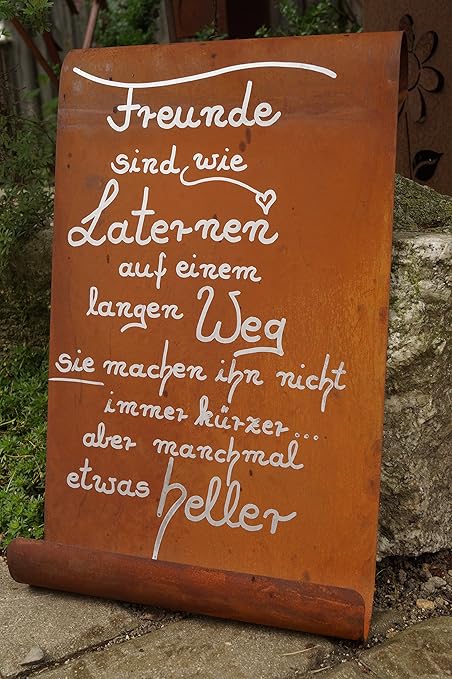 Freunde
sind wie
Laternen
auf einem
langen Weg
sie machen ihn nicht
immer kürzer...
aber manchmal
etwas heller